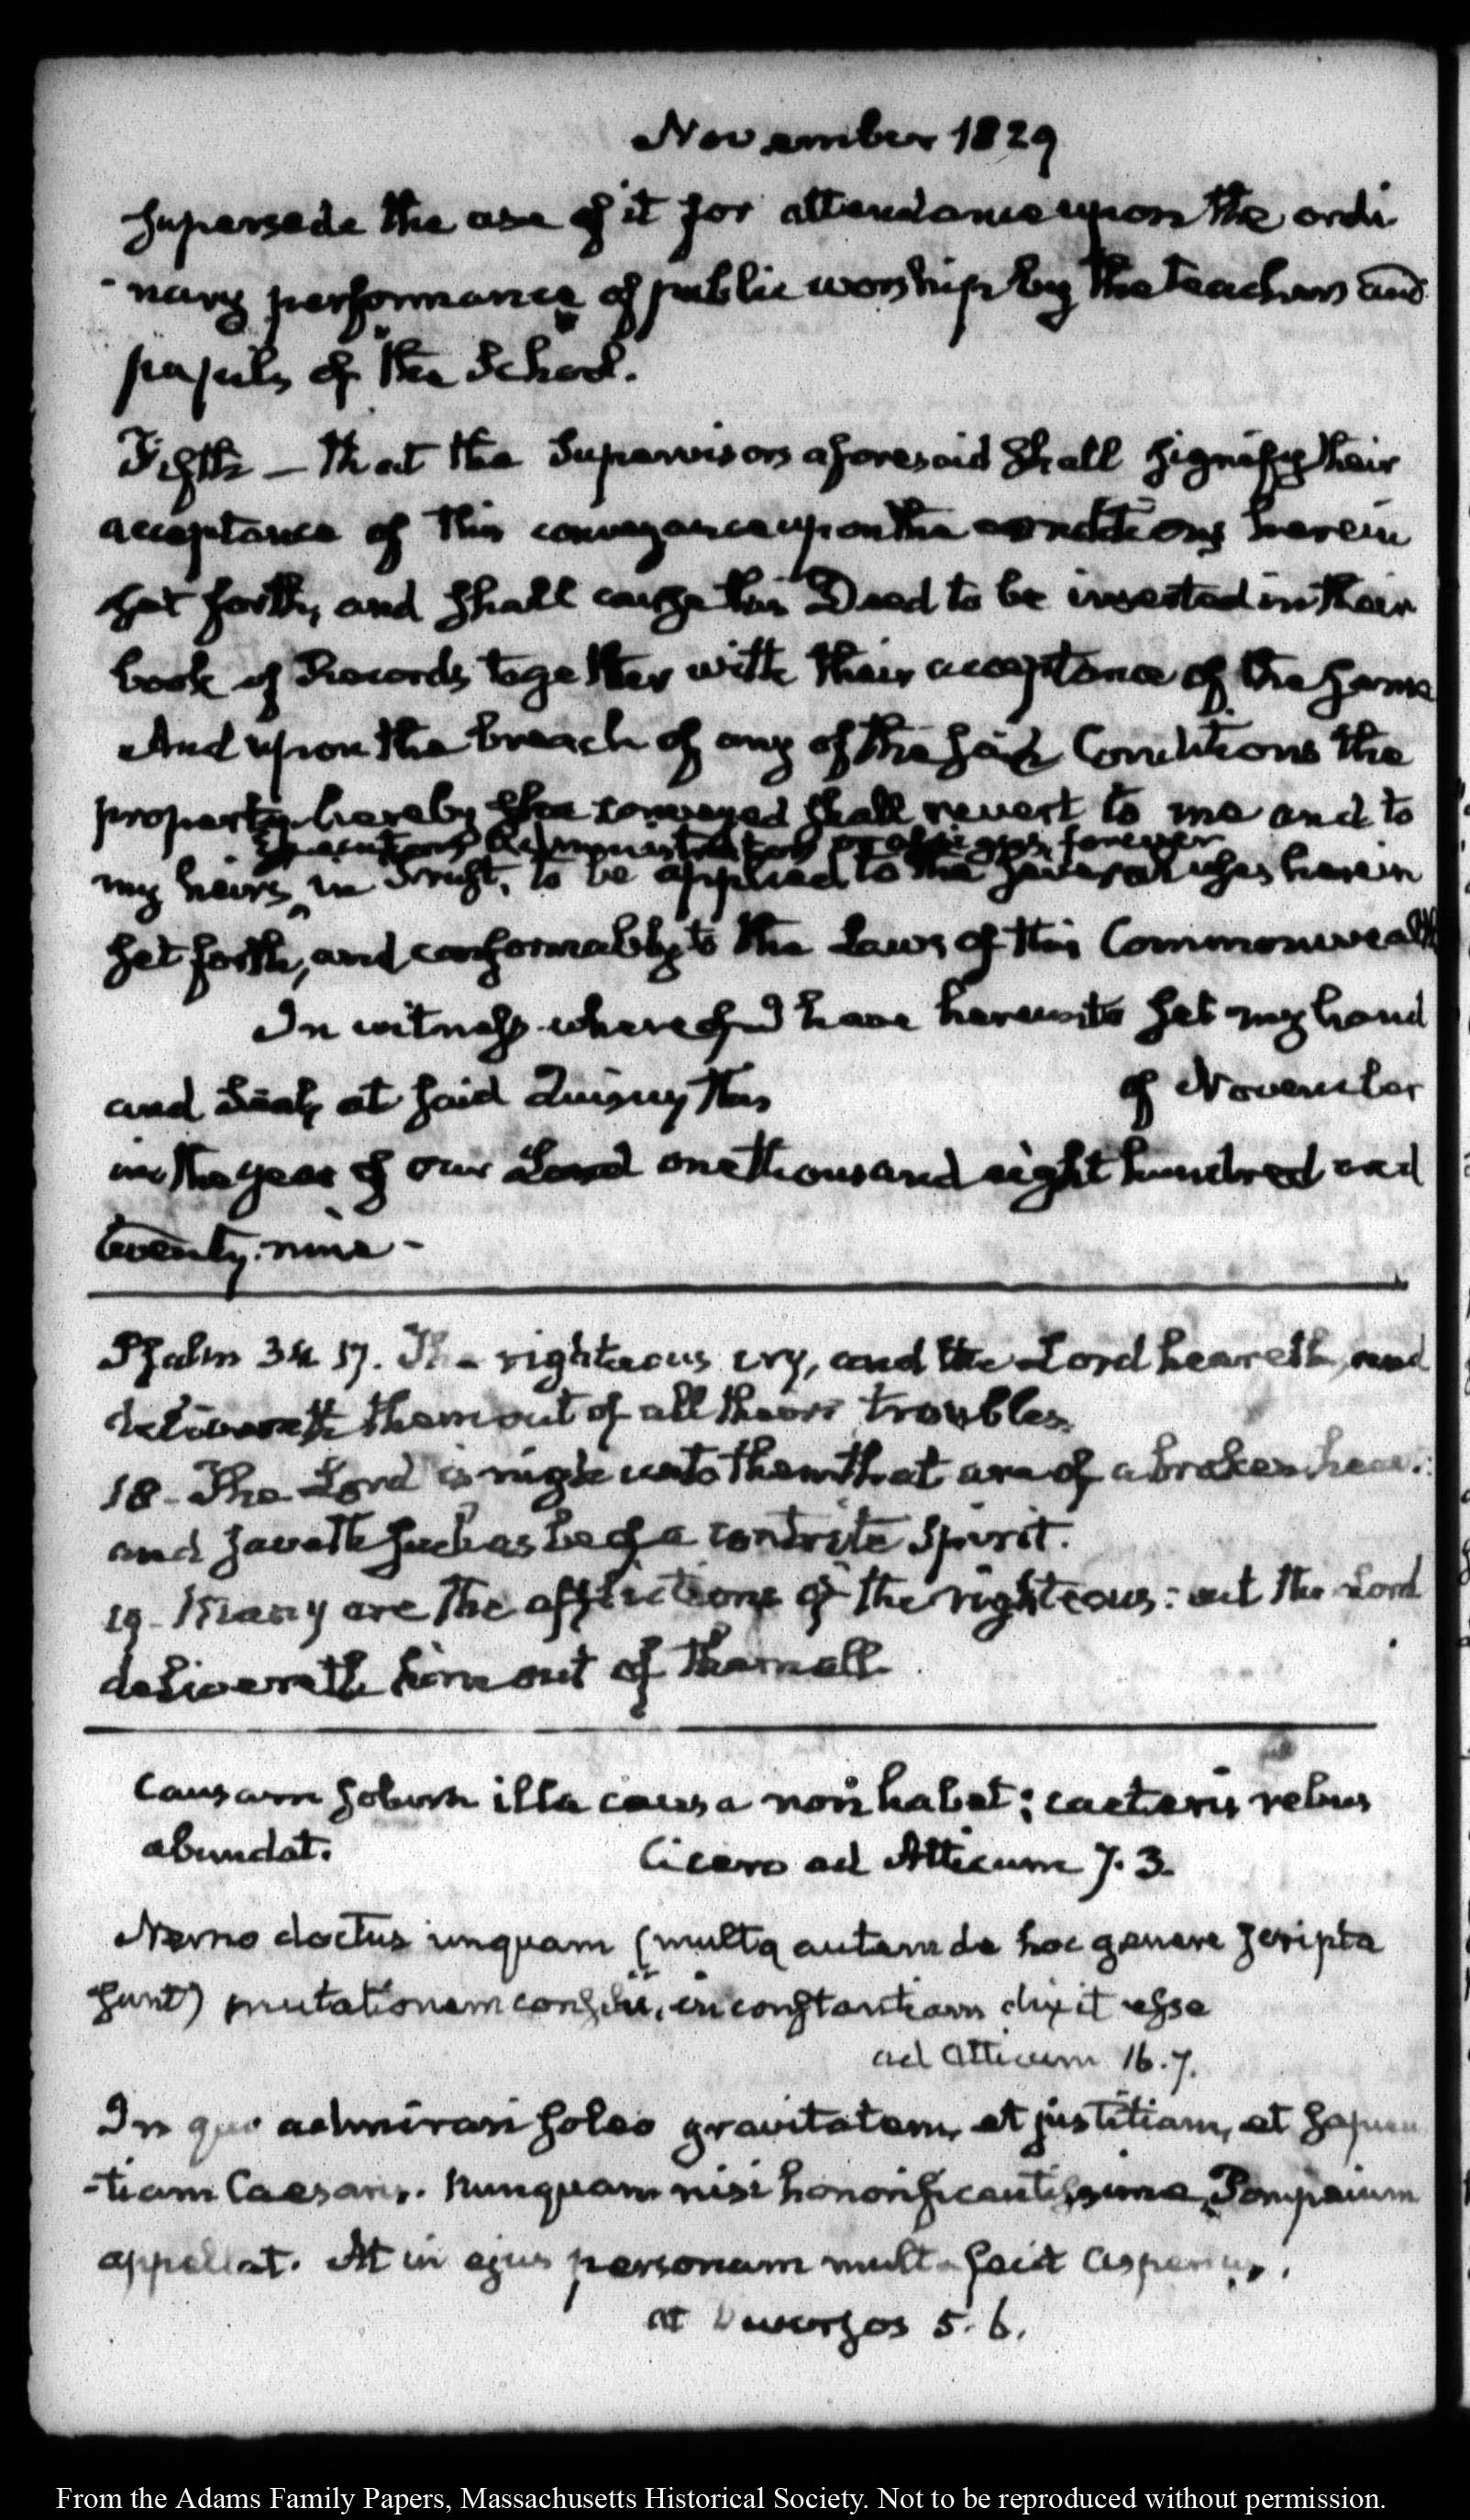 November 1829
supersede the use of it for attendance upon the ordi
-nary performance of public worship by the teachers and
pupils of the School.
Fifth — that the Supervisors aforesaid shall signify their
acceptance of this conveyance upon the conditions herein
set forth, and shall cause this Deed to be inserted in their
book of Records together with their acceptance of the same
And upon the breach of any of the said Conditions the
property hereby conveyed shall revert to me and to
Executors Administrators or assigns, forever
my heirs in Trust, to be applied to the several uses herein
set forth, and conformably to the Laws of this Commonwealth
In witness whereof I have hereunto set my hand
and Seal, at said Quincy this of November
in the year of our Lord one thousand eight hundred and
twenty-nine -
Psalm 34. 17. The righteous cry, and the Lord heareth, and
delivereth them out of all their troubles.
18 - The Lord is nigh unto them that are of a broken heart:
and saveth such as be of a contrite spirit.
19 - Many are the afflictions of the righteous: but the Lord
delivereth him out of them all.
Causam solum illa causa non habet; caeteris rebus
abundat. Cicero ad Atticum 7. 3.
Nemo doctus unquam (multa autem de hoc genere scripta
sunt) mutationem consilii, inconstantiam dixit esse
ad Atticum 16. 7.
In quo admirari soleo gravitatem, et justitiam, et sapien
-tiam Caesaris. Nunquam nisi honorificentissime Pompeium
appellat. At in ejus personam multa fecit asperius.
5. 6.